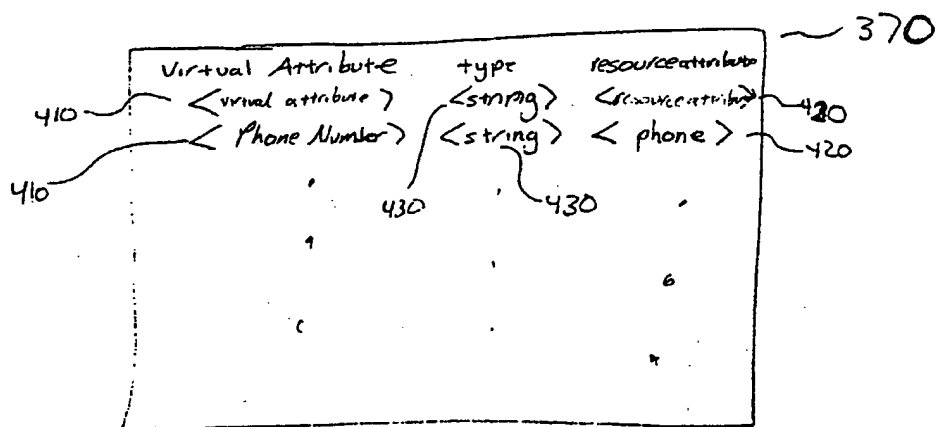 370
Virtual Attribute type resource attribute
410 <virtual attribute> <string> <resource attribute> 420
<Phone Number> <string> <phone> 420
410 430 430